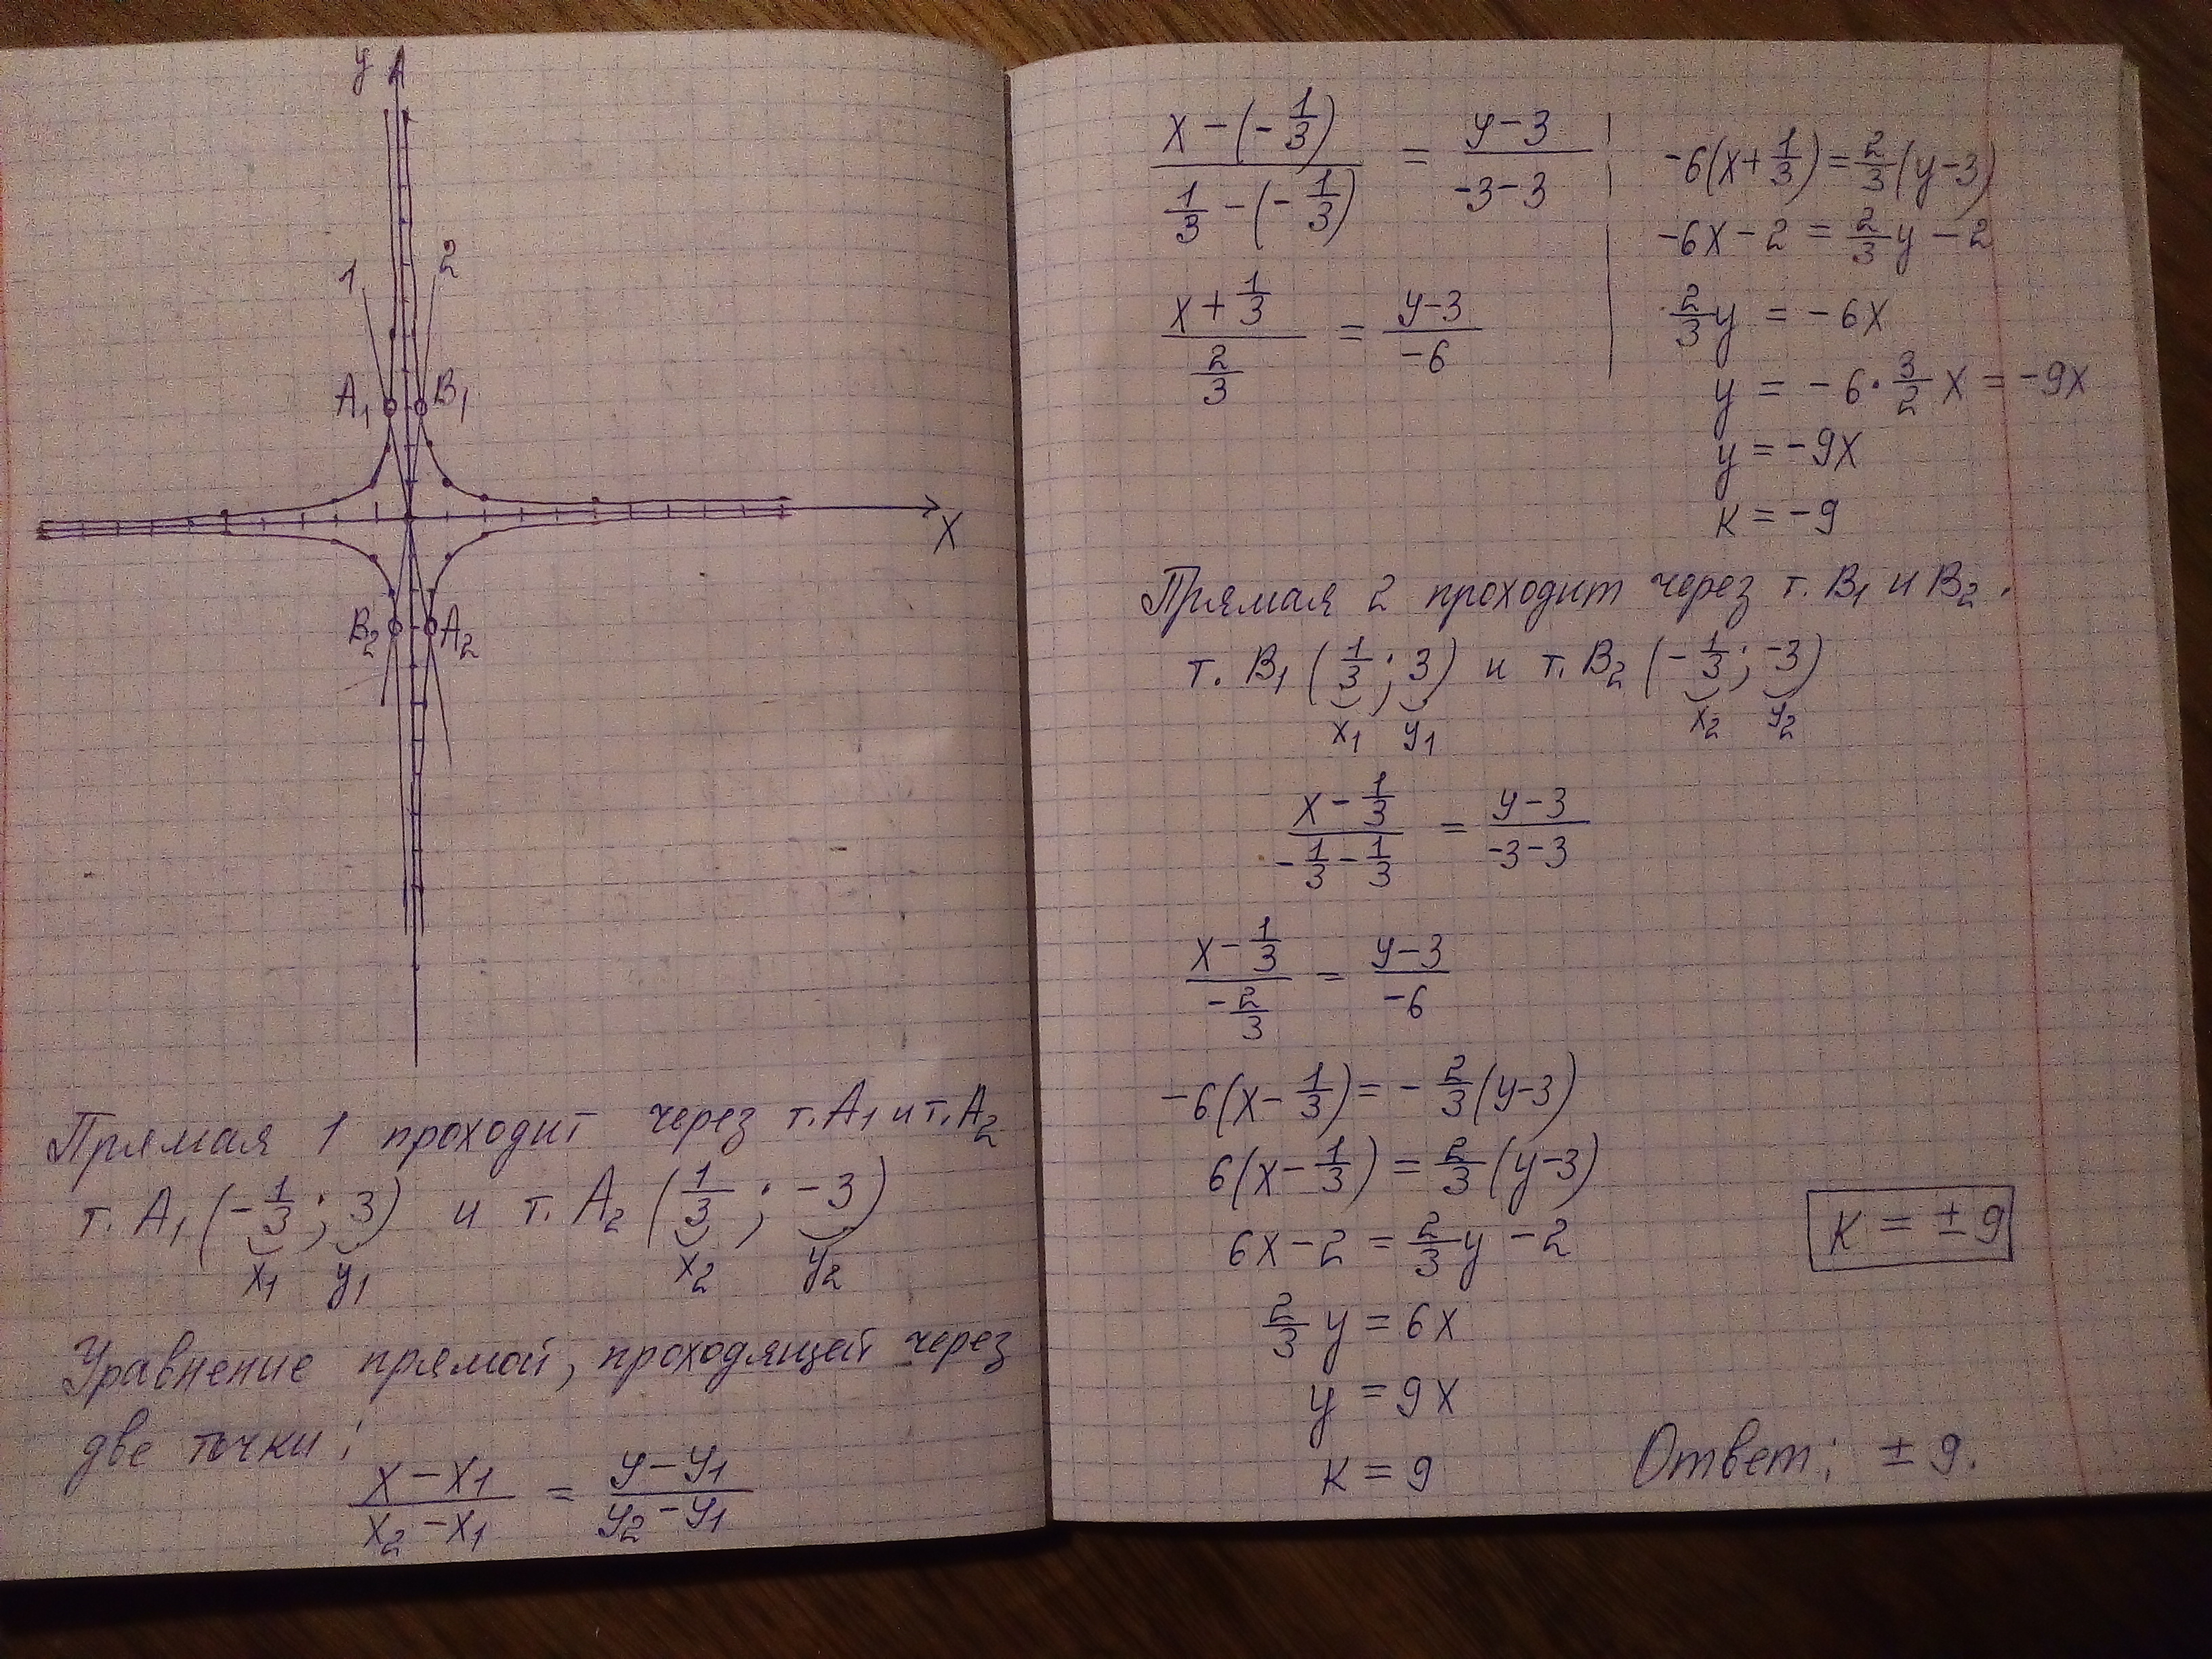 y
1 2
A₁ B₁
X
B₂ A₂
Прямая 1 проходит через т. A₁ и т. A₂
т. A₁ (-1/3; 3) и т. A₂ (1/3; -3)
x₁ y₁ x₂ y₂
Уравнение прямой, проходящей через
две точки:
(x - x₁)/(x₂ - x₁) = (y - y₁)/(y₂ - y₁)
(x - (-1/3))/(1/3 - (-1/3)) = (y - 3)/(-3 - 3)
(x + 1/3)/(2/3) = (y - 3)/(-6)
-6(x + 1/3) = 2/3(y - 3)
-6x - 2 = 2/3 y - 2
2/3 y = -6x
y = -6 · 3/2 x = -9x
y = -9x
k = -9
Прямая 2 проходит через т. B₁ и B₂.
т. B₁ (1/3; 3) и т. B₂ (-1/3; -3)
x₁ y₁ x₂ y₂
(x - 1/3)/(-1/3 - 1/3) = (y - 3)/(-3 - 3)
(x - 1/3)/(-2/3) = (y - 3)/(-6)
-6(x - 1/3) = -2/3(y - 3)
6(x - 1/3) = 2/3(y - 3)
6x - 2 = 2/3 y - 2
2/3 y = 6x
y = 9x
k = 9
k = ± 9
Ответ: ± 9.